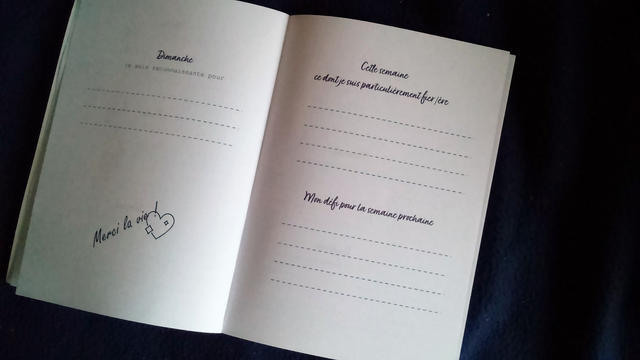 Dimanche
je suis reconnaissante pour
Merci la vie !
Cette semaine
ce dont je suis particulièrement fier/ère
Mon défi pour la semaine prochaine